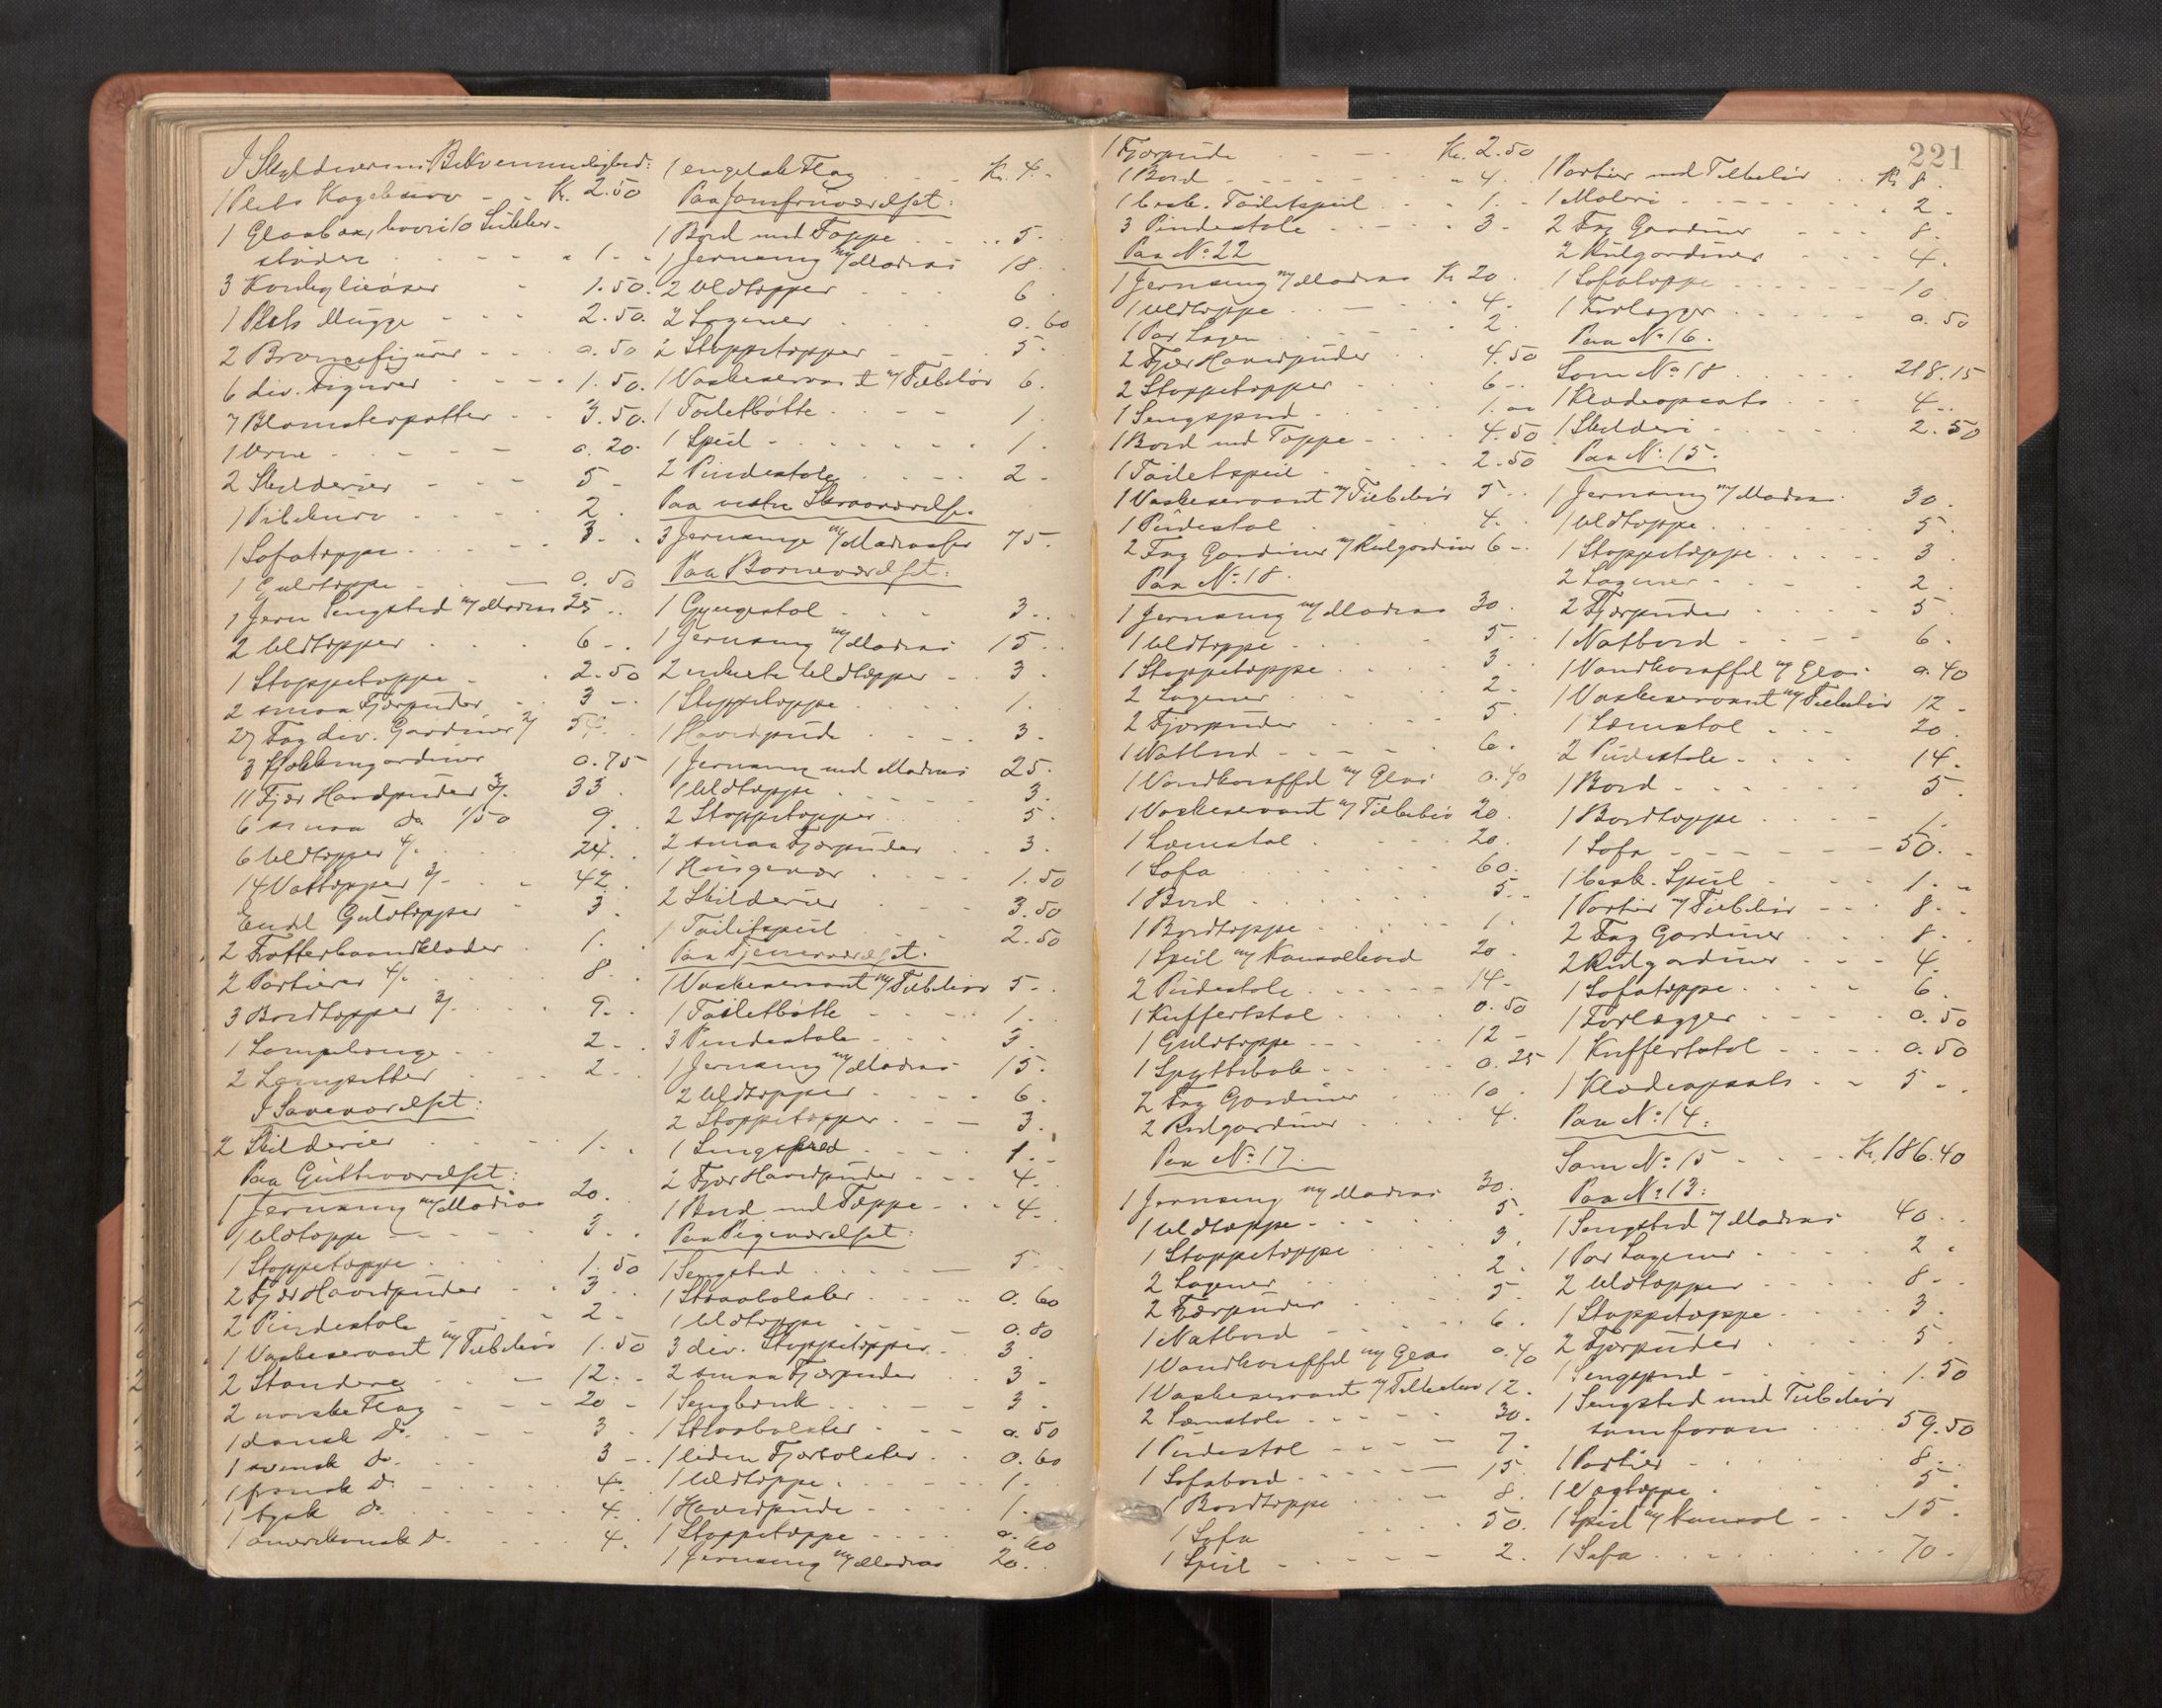 I Skyldnerens Bekvemmelighed:
1 Plets Kagekurv - - Kr. 2.50
1 Glaskax, hvori 10 Sukker-
skåder . - - - " 1. -
3 Konkylieåser - 1.50.
1 Plets Mugge - - - 2.50.
2 Broncefigurer - - - 0.50
6 div. Figurer - - - 1.50.
7 Blomsterpotter - - 3.50.
1 Urne - - - - 0.20
2 Skilderier - - - 5 -
1 Pilekurv - - - 2.
1 Sofatæppe - - - 3. .
1 Gulvtæppe - - - 0.50
1 Jern Sengsted m/Madras 25 ..
2 Uldtæpper . . . 6 -.
1 Stoppetæppe - . 2.50
2 smaa Fjærpuder - 3 -.
27 Fag div. Gardiner 2/ 54.
3 Kjøkkengardiner 0.75
11 Fjær Hovedpuder 3/. 33.
6 smaa do 1/50 9.
6 Uldtæpper 4/. 24.
14 Vattæpper 3/- . . 42.
Endl Gulvtæpper - 3.
2 Frotterhaandklæder . 1.
2 Portierer 4/. . . 8.
3 Bordtæpper 3/. . . . 9. .
1 Lampekrone - . . 2 -.
2 Lampetter . . . 2 -.
I Soveværelset:
2 Skilderier - - - 1. .
Paa Gutteværelset:
1 Jernseng m/Madras 20.
1 Uldtæppe - - - 3. .
1 Stoppetæppe - - - 1.50
2 Fjær Hovedpuder - - 3 .
2 Pindestole - - - 2 -
1 Vaskeservant m/Tilbehör 1.50
2 Standere - - - 12. -
2 norske Flag - - - 20 -
1 dansk do. - - - 3 .
1 svensk do. - - - 3 -.
1 fransk do. - - - 4.
1 tysk do. - - - 4.
1 amerikansk do. - - 4.
1 engelsk Flag . - - Kr. 4. -
Paa Jomfruværelset:
1 Bord med Tæppe . . . 5 -
1 Jernseng m/Madras 18 .
2 Uldtæpper - - - 6 .
2 Lagener . . . 0.60
2 Stoppetæpper - - - 5 -
1 Vaskeservant m/Tilbehör 6.
1 Toiletbøtte . - - - 1.
1 Speil - - - - 1.
2 Pindestole . . . . 2 -
Paa vestre Skraaværelse.
3 Jernsenge m/Madrasser 75 -
Paa Barneværelset:
1 Gyngestol . . . 3 ..
1 Jernseng m/Madras 15 ..
2 enkelte Uldtæpper - - 3 .
1 Stoppetæppe . . . . 1.
1 Hovedpude . . . . 3 .
1 Jernseng med Madras 25 -
1 Uldtæppe . . . . 3.
2 Stoppetæpper . . . 5 .
2 smaa Fjærpuder . . 3 .
1 Husgevær . . . 1.50
2 Skilderier - - - 3.50
1 Toiletspeil . . . 2.50
Paa Tjenerværelset:
1 Vaskeservant m/Tilbehör 5 -
1 Toiletbøtte - - - 1.
3 Pindestole - - - 3 .
1 Jernseng m/Madras 15 .
2 Uldtæpper - - - 6 .
2 Stoppetæpper - - - 3 .
1 Sengspred - - - 1. -
2 Fjær Hovedpuder - - 4.
1 Bord med Tæppe - - - 4.
Paa Pigeværelset:
1 Sengsted . . . - 5 -.
1 Straabolster . . . 0.60
1 Uldtæppe . - - - 0.80
3 div. Stoppetæpper . 3 .
2 smaa Fjærpuder . . 3 -
1 Sengbænk . . . - 3 .
1 Straabolster - - - 0.50
1 liden Fjærbolster . . 0.60
1 Uldtæppe . - - - 1.
1 Hovedpude . - - 1.
1 Stoppetæppe - - - 0.60
1 Jernseng m/Madras 20.
221
1 Fjærpude . - - Kr. 2.50
1 Bord - - - - " 4.
1 besk. Toiletspeil . - 1.
3 Pindestole - - - 3 -
Paa No. 22
1 Jernseng m/Madras Kr 20 .
1 Uldtæppe . - - 4.
1 Par Lagen . - - 2.
2 Fjær Hovedpuder . . 4.50
2 Stoppetæpper - - - 6 -.
1 Sengspred - . . . 1. -
1 Bord med Tæppe - - - 4.50
1 Toiletspeil . . . 2.50
1 Vaskeservant m/Tilbehör 5 -.
1 Pudestol . . . . 4.
2 Fag Gardiner m/Rulgardiner 6 -.
Paa No. 18.
1 Jernseng m/Madras 30 .
1 Uldtæppe . . . 5 -
1 Stoppetæppe . . . 3 .
2 Lagener . . . 2 -
2 Fjærpuder . . . 5 .
1 Natbord - - - - 6 .
1 Vandkaraffel m/Glas 0.40
1 Vaskeservant m/Tilbehör 20.
1 Lænestol . - - - 20.
1 Sofa . . . . 60.
1 Bord . . . . 5 -.
1 Bordtæppe . . . 1.
1 Speil m/Konsolbord 20 .
2 Pudestole . . - - 14 -
1 Kuffertstol . . . . 0.50
1 Gulvtæppe - - - 12 -
1 Spyttebak - - - 0.25
2 Fag Gardiner . . . 10 .
2 Rulgardiner . . . 4.
Paa No. 17.
1 Jernseng m/Madras 30.
1 Uldtæppe - - - 5 .
1 Stoppetæppe . . . 3.
2 Lagener . . . 2 .
2 Fjærpuder . . . 5 -
1 Natbord - - - - 6 .
1 Vandkaraffel m/Glas 0.40
1 Vaskeservant m/Tilbehör 12.
2 Lænestole - - - - 30.
1 Pudestol - - - - 7.
1 Sofabord - - - - 15
1 Bordtæppe . . . 8.
1 Sofa . . . 50.
1 Speil - - - - 2.
1 Portier med Tilbehör . . Kr 8.
1 Maleri - - - - - 2 -
2 Fag Gardiner - - - 8.
2 Rulgardiner - - - 4.
1 Sofatæppe . . - - 10
1 Forlægger . . . 0.50
Paa No. 16.
Som No. 18 . - - - 218.15
1 Klædeopsats . . . 4 -.
1 Skilderi . . . . 2.50
Paa No. 15.
1 Jernseng m/Madras . 30.
1 Uldtæppe . . . . 5 .
1 Stoppetæppe . . . . 3
2 Lagener - - - 2 .
2 Fjærpuder . . . . 5
1 Natbord - - - - 6 .
1 Vandkaraffel m/Glas 0.40
1 Vaskeservant m/Tilbehör 12 -
1 Lænestol . . . 20.
2 Pudestole . . . . 14.
1 Bord - - - - 5 .
1 Bordtæppe . . . - 1.
1 Sofa - - - - - 50. -
1 besk. Speil . . - 1. -
1 Portier m/Tilbehör - - - 8 -.
2 Fag Gardiner . . . 8 -
2 Rulgardiner - - - 4.
1 Sofatæppe . . . . 6 .
1 Forlægger - - - - 0.50
1 Kuffertstol - - - - 0.50
1 Klædeopsats - - 5 - .
Paa No. 14.
Som No. 15 - - - Kr. 186.40
Paa No. 13:
1 Sengsted m/Madras 40 ..
1 Par Lagener . . . 2 .
2 Uldtæpper . . . . 8 -.
1 Stoppetæppe . . . . 3 .
2 Fjærpuder . . . 5 .
1 Sengspred - - - 1.50
1 Sengsted med Tilbehör
som foran . . . 59.50
1 Portier . . . 8 -.
1 Vægtæppe . . . 5 .
1 Speil m/Konsol - - - 15 .
1 Sofa . . . . . . 70 -